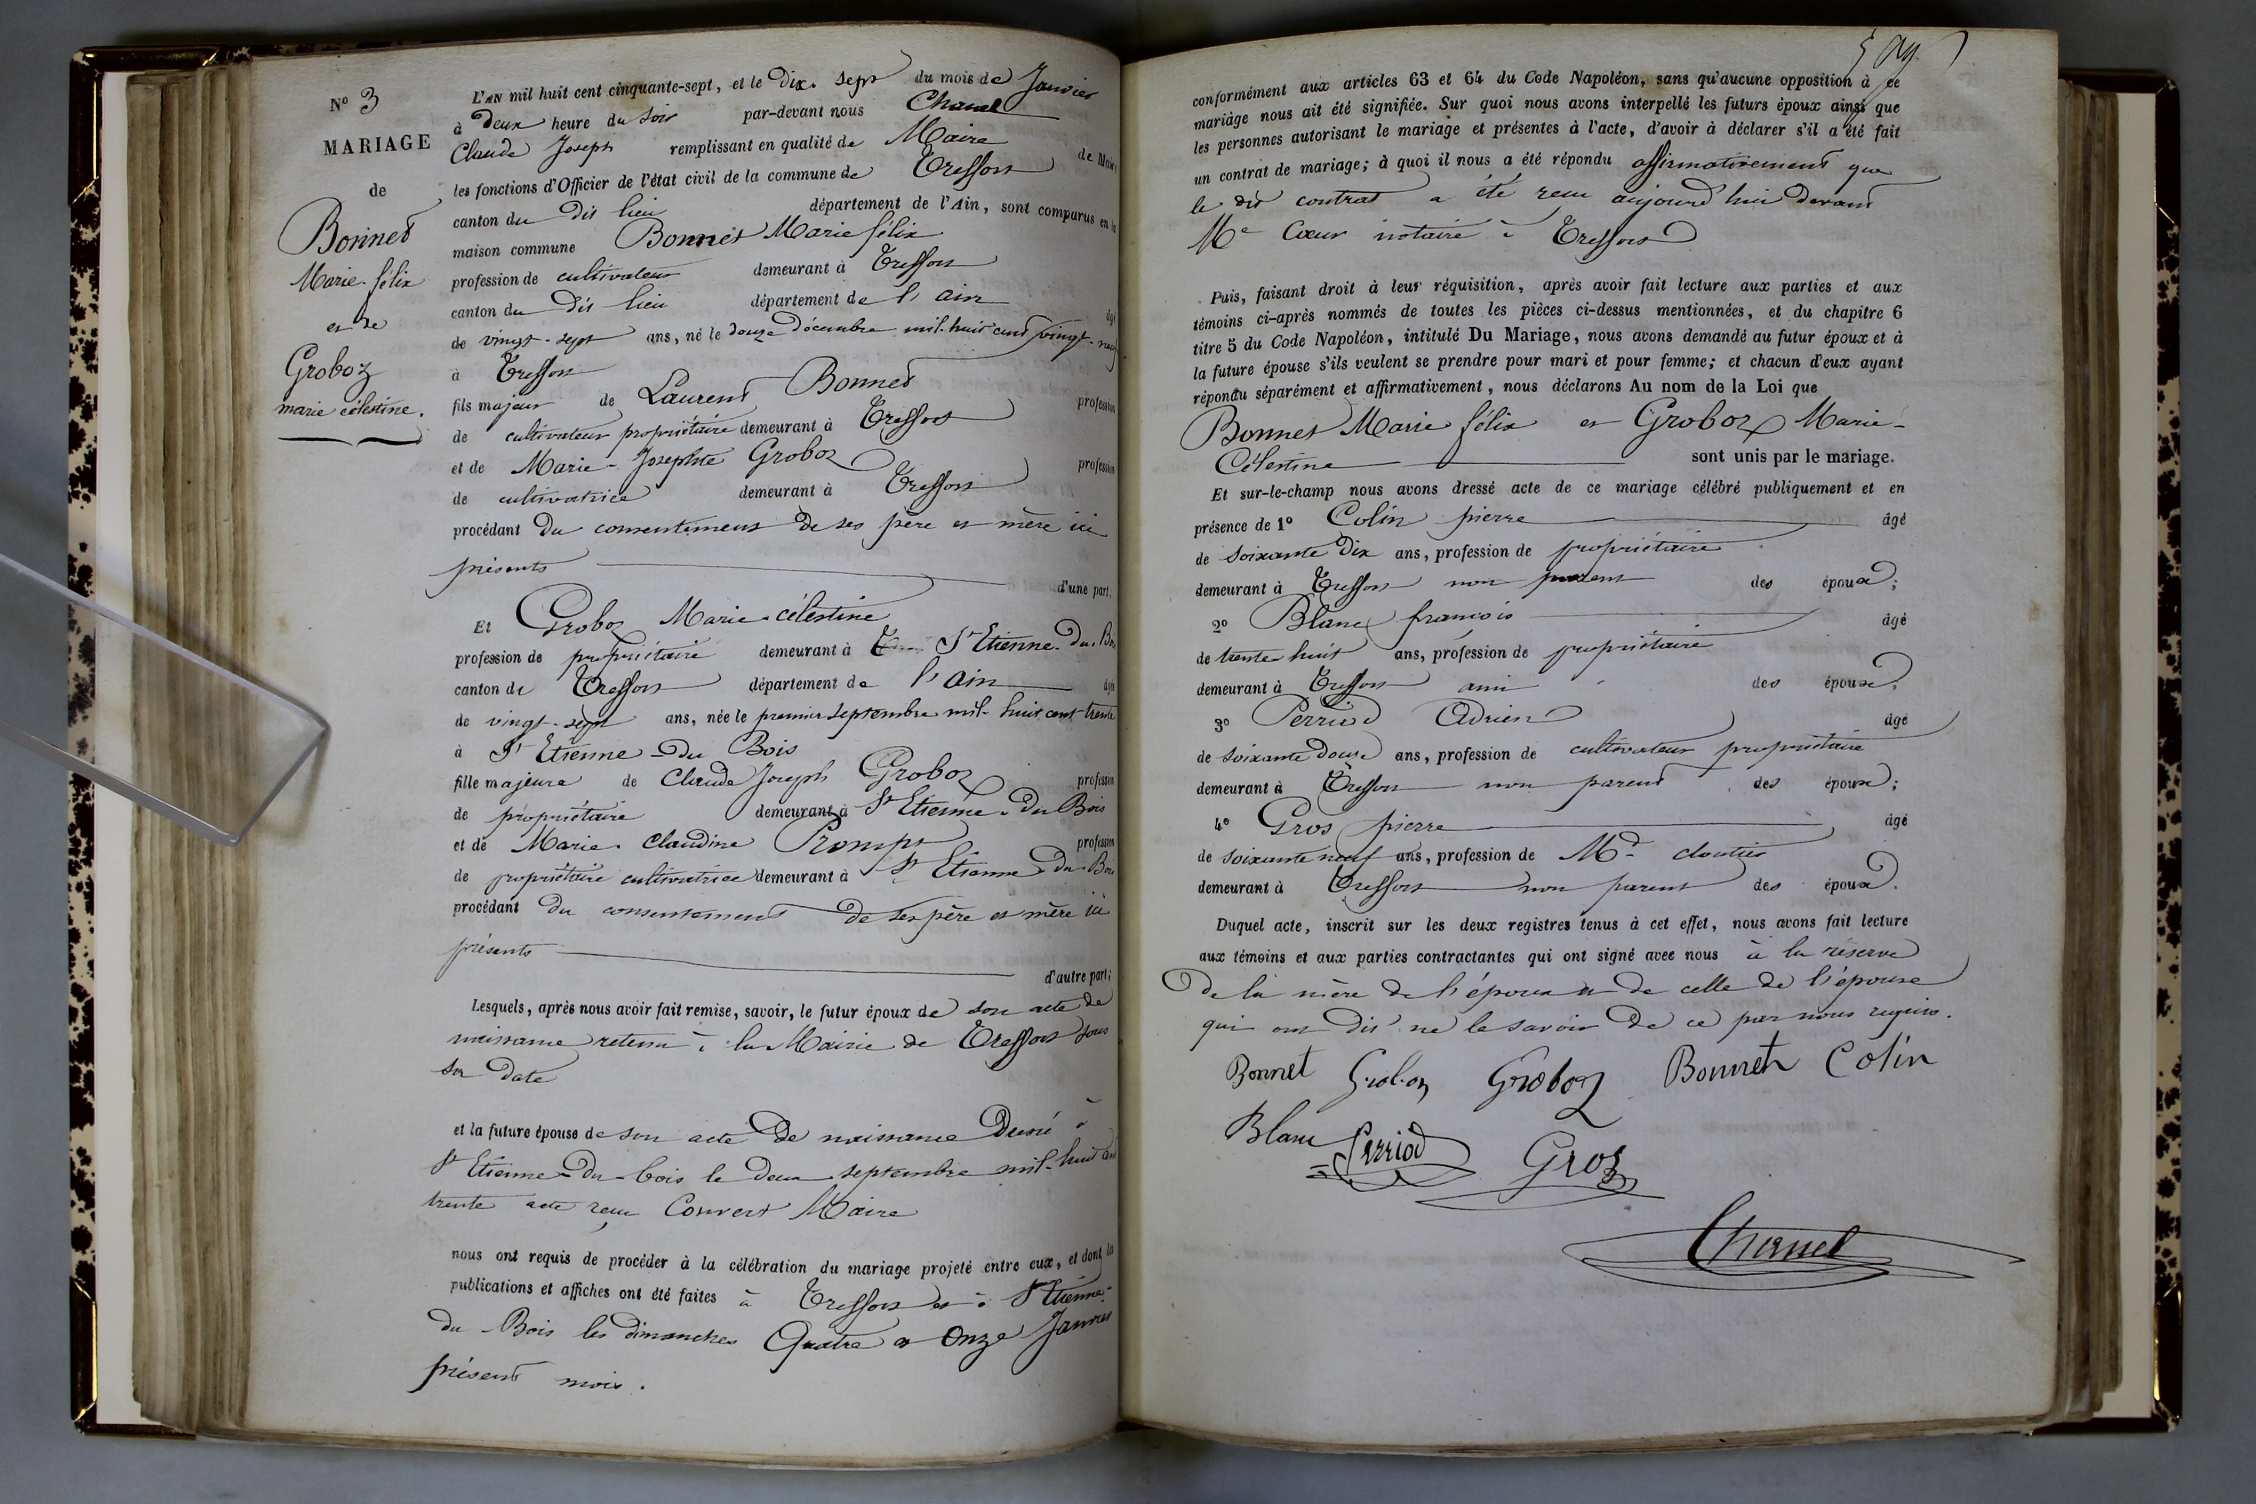 N° 3
MARIAGE
de
Bonnet
Marie félix
et de
Groboz
marie célestine.
L'AN mil huit cent cinquante-sept, et le Dix-sept du mois de Janvier
à Deux heure du Soir par-devant nous Chanel
Claude Joseph remplissant en qualité de Maire de Mair
les fonctions d'Officier de l'état civil de la commune de Treffort
canton du dit lieu département de l'Ain, sont comparus en la
maison commune Bonnet Marie félix
profession de cultivateur demeurant à Treffort
canton du Dit lieu département de l'ain âgé
de vingt-sept ans, né le douze Décembre mil-huit cent vingt-neuf
à Treffort
fils majeur de Laurent Bonnet profession
de cultivateur propriétaire demeurant à Treffort
et de Marie-Josephte Groboz profession
de cultivatrice demeurant à Treffort
procédant du consentement de ses père et mère ici
présents d'une part.
Et Groboz Marie-célestine
profession de propriétaire demeurant à St Etienne-Du-Bois
canton de Treffort département de l'ain âgée
de vingt-sept ans, née le premier septembre mil-huit cent trente
à St Etienne-Du Bois
fille majeure de Claude Joseph Groboz profession
de propriétaire demeurant à St Etienne-Du Bois
et de Marie-Claudine Prompt profession
de propriétaire cultivatrice demeurant à St Etienne-Du-Bois
procédant du consentement de ses père et mère ici
présents d'autre part;
Lesquels, après nous avoir fait remise, savoir, le futur époux de son acte de
naissance retenu à la Mairie de Treffort sous
sa Date
et la future épouse de son acte de naissance Dressé à
St Etienne-du-bois le deux septembre mil-huit cent
trente acte reçu Convert Maire
nous ont requis de procéder à la célébration du mariage projeté entre eux, et dont les
publications et affiches ont été faites à Treffort et à St Etienne-
du-Bois les dimanches Quatre et Onze Janvier
présent mois.
conformément aux articles 63 et 64 du Code Napoléon, sans qu'aucune opposition à ce
mariage nous ait été signifiée. Sur quoi nous avons interpellé les futurs époux ainsi que
les personnes autorisant le mariage et présentes à l'acte, d'avoir à déclarer s'il a été fait
un contrat de mariage; à quoi il nous a été répondu affirmativement que
le dit contrat a été reçu aujourd'hui devant
Me Cœur notaire à Treffort
Puis, faisant droit à leur réquisition, après avoir fait lecture aux parties et aux
témoins ci-après nommés de toutes les pièces ci-dessus mentionnées, et du chapitre 6
titre 5 du Code Napoléon, intitulé Du Mariage, nous avons demandé au futur époux et à
la future épouse s'ils veulent se prendre pour mari et pour femme; et chacun d'eux ayant
répondu séparément et affirmativement, nous déclarons Au nom de la Loi que
Bonnet Marie félix et Groboz Marie-
Célestine sont unis par le mariage.
Et sur-le-champ nous avons dressé acte de ce mariage célébré publiquement et en
présence de 1° Colin pierre âgé
de soixante dix ans, profession de propriétaire
demeurant à Treffort non parent des époux;
2° Blanc francois âgé
de trente huit ans, profession de propriétaire
demeurant à Treffort ami des époux;
3° Perriod Adrien âgé
de soixante douze ans, profession de cultivateur propriétaire
demeurant à Treffort non parent des époux;
4° Gros pierre âgé
de soixante neuf ans, profession de Md cloutier
demeurant à Treffort non parent des époux.
Duquel acte, inscrit sur les deux registres tenus à cet effet, nous avons fait lecture
aux témoins et aux parties contractantes qui ont signé avec nous à la réserve
De la mère de l'époux et de celle de l'épouse
qui ont dit ne le savoir de ce par nous requis.
Bonnet Grobon Groboz Bonnet Colin
Blanc Perriod Gros
Chanel